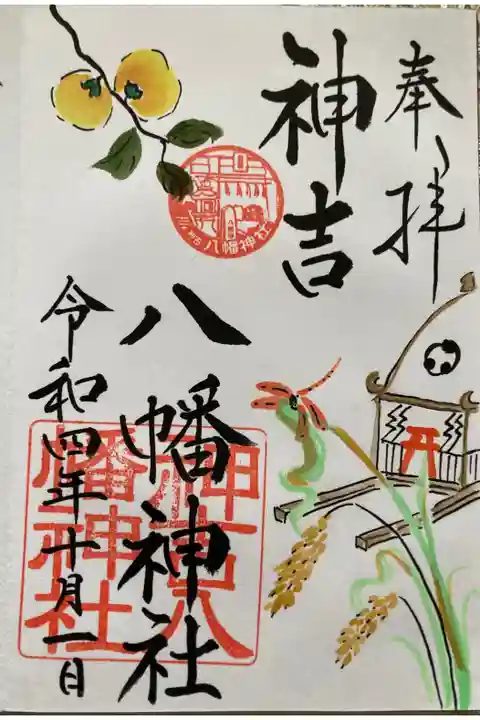 奉拝
神吉
八幡神社
令和四年十月一日
神吉八
幡神社
八幡神社